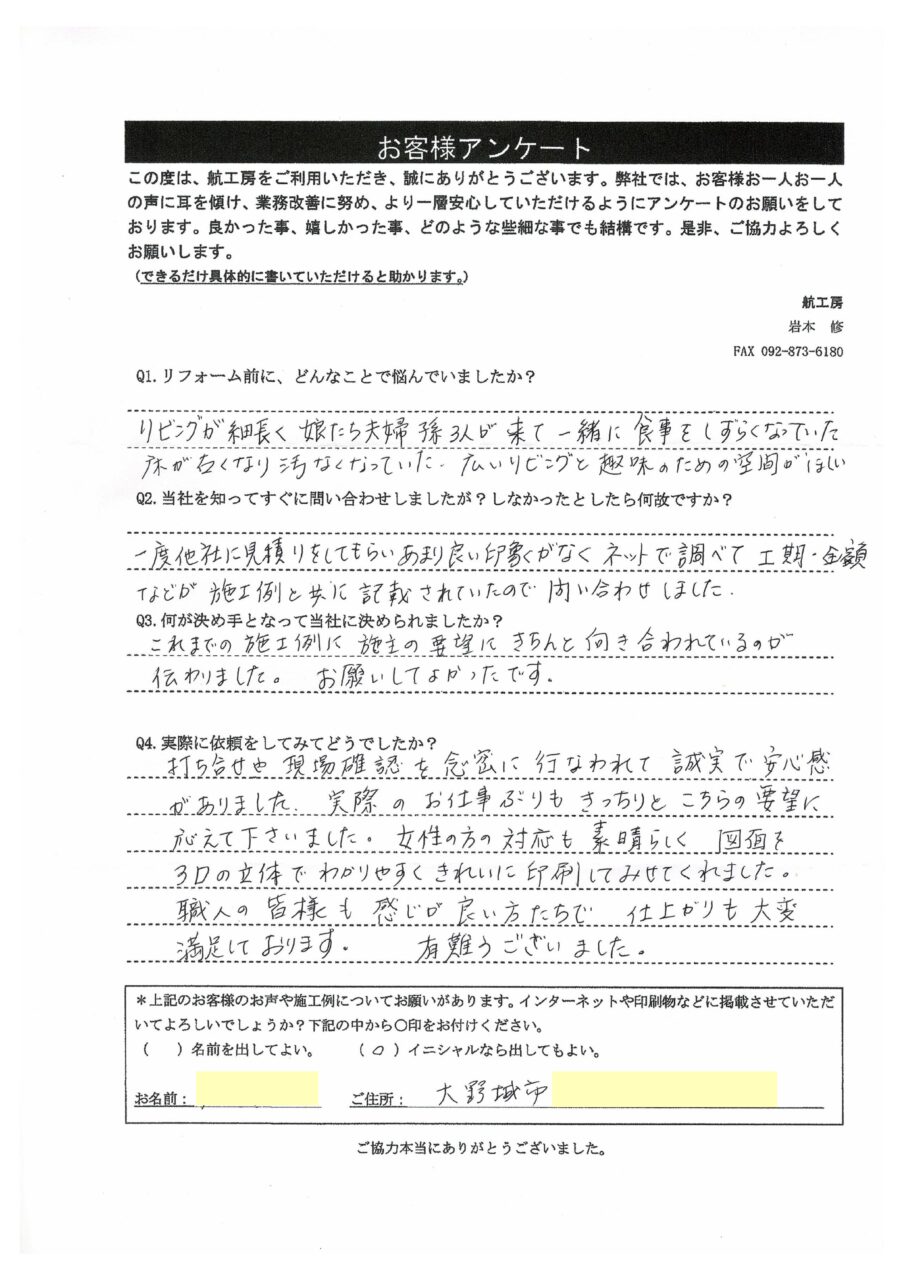 お客様アンケート
この度は、航工房をご利用いただき、誠にありがとうございます。弊社では、お客様お一人お一人
の声に耳を傾け、業務改善に努め、より一層安心していただけるようにアンケートのお願いをして
おります。良かった事、嬉しかった事、どのような些細な事でも結構です。是非、ご協力よろしく
お願いします。
（できるだけ具体的に書いていただけると助かります。）
航工房
岩本 修
FAX 092-873-6180
Q1.リフォーム前に、どんなことで悩んでいましたか？
リビングが細長く 娘たち夫婦 孫3人が 来て 一緒に 食事を しずらくなっていた
床が古くなり 汚なくなっていた. 広いリビングと 趣味のための空間がほしい
Q2.当社を知ってすぐに問い合わせしましたが？しなかったとしたら何故ですか？
一度他社に見積りをしてもらい あまり良い印象がなく ネットで調べて 工期・金額
などが 施工例と共に 記載されていたので 問い合わせしました.
Q3.何が決め手となって当社に決められましたか？
これまでの 施工例に 施主の要望に きちんと 向き合われているのが
伝わりました。 お願いしてよかったです.
Q4.実際に依頼をしてみてどうでしたか？
打ち合せや 現場確認を 念密に 行なわれて 誠実で 安心感
がありました. 実際の お仕事ぶりも きっちりと こちらの要望に
応えて下さいました。女性の方の対応も 素晴らしく 図面を
3Dの立体で わかりやすく きれいに 印刷してみせてくれました。
職人の 皆様も 感じが 良い方たちで 仕上がりも 大変
満足しております. 有難うございました。
＊上記のお客様のお声や施工例についてお願いがあります。インターネットや印刷物などに掲載させていただ
いてよろしいでしょうか？下記の中から〇印をお付けください。
（ ）名前を出してよい。 （ ○ ）イニシャルなら出してもよい。
お名前： ご住所： 大野城市
ご協力本当にありがとうございました。